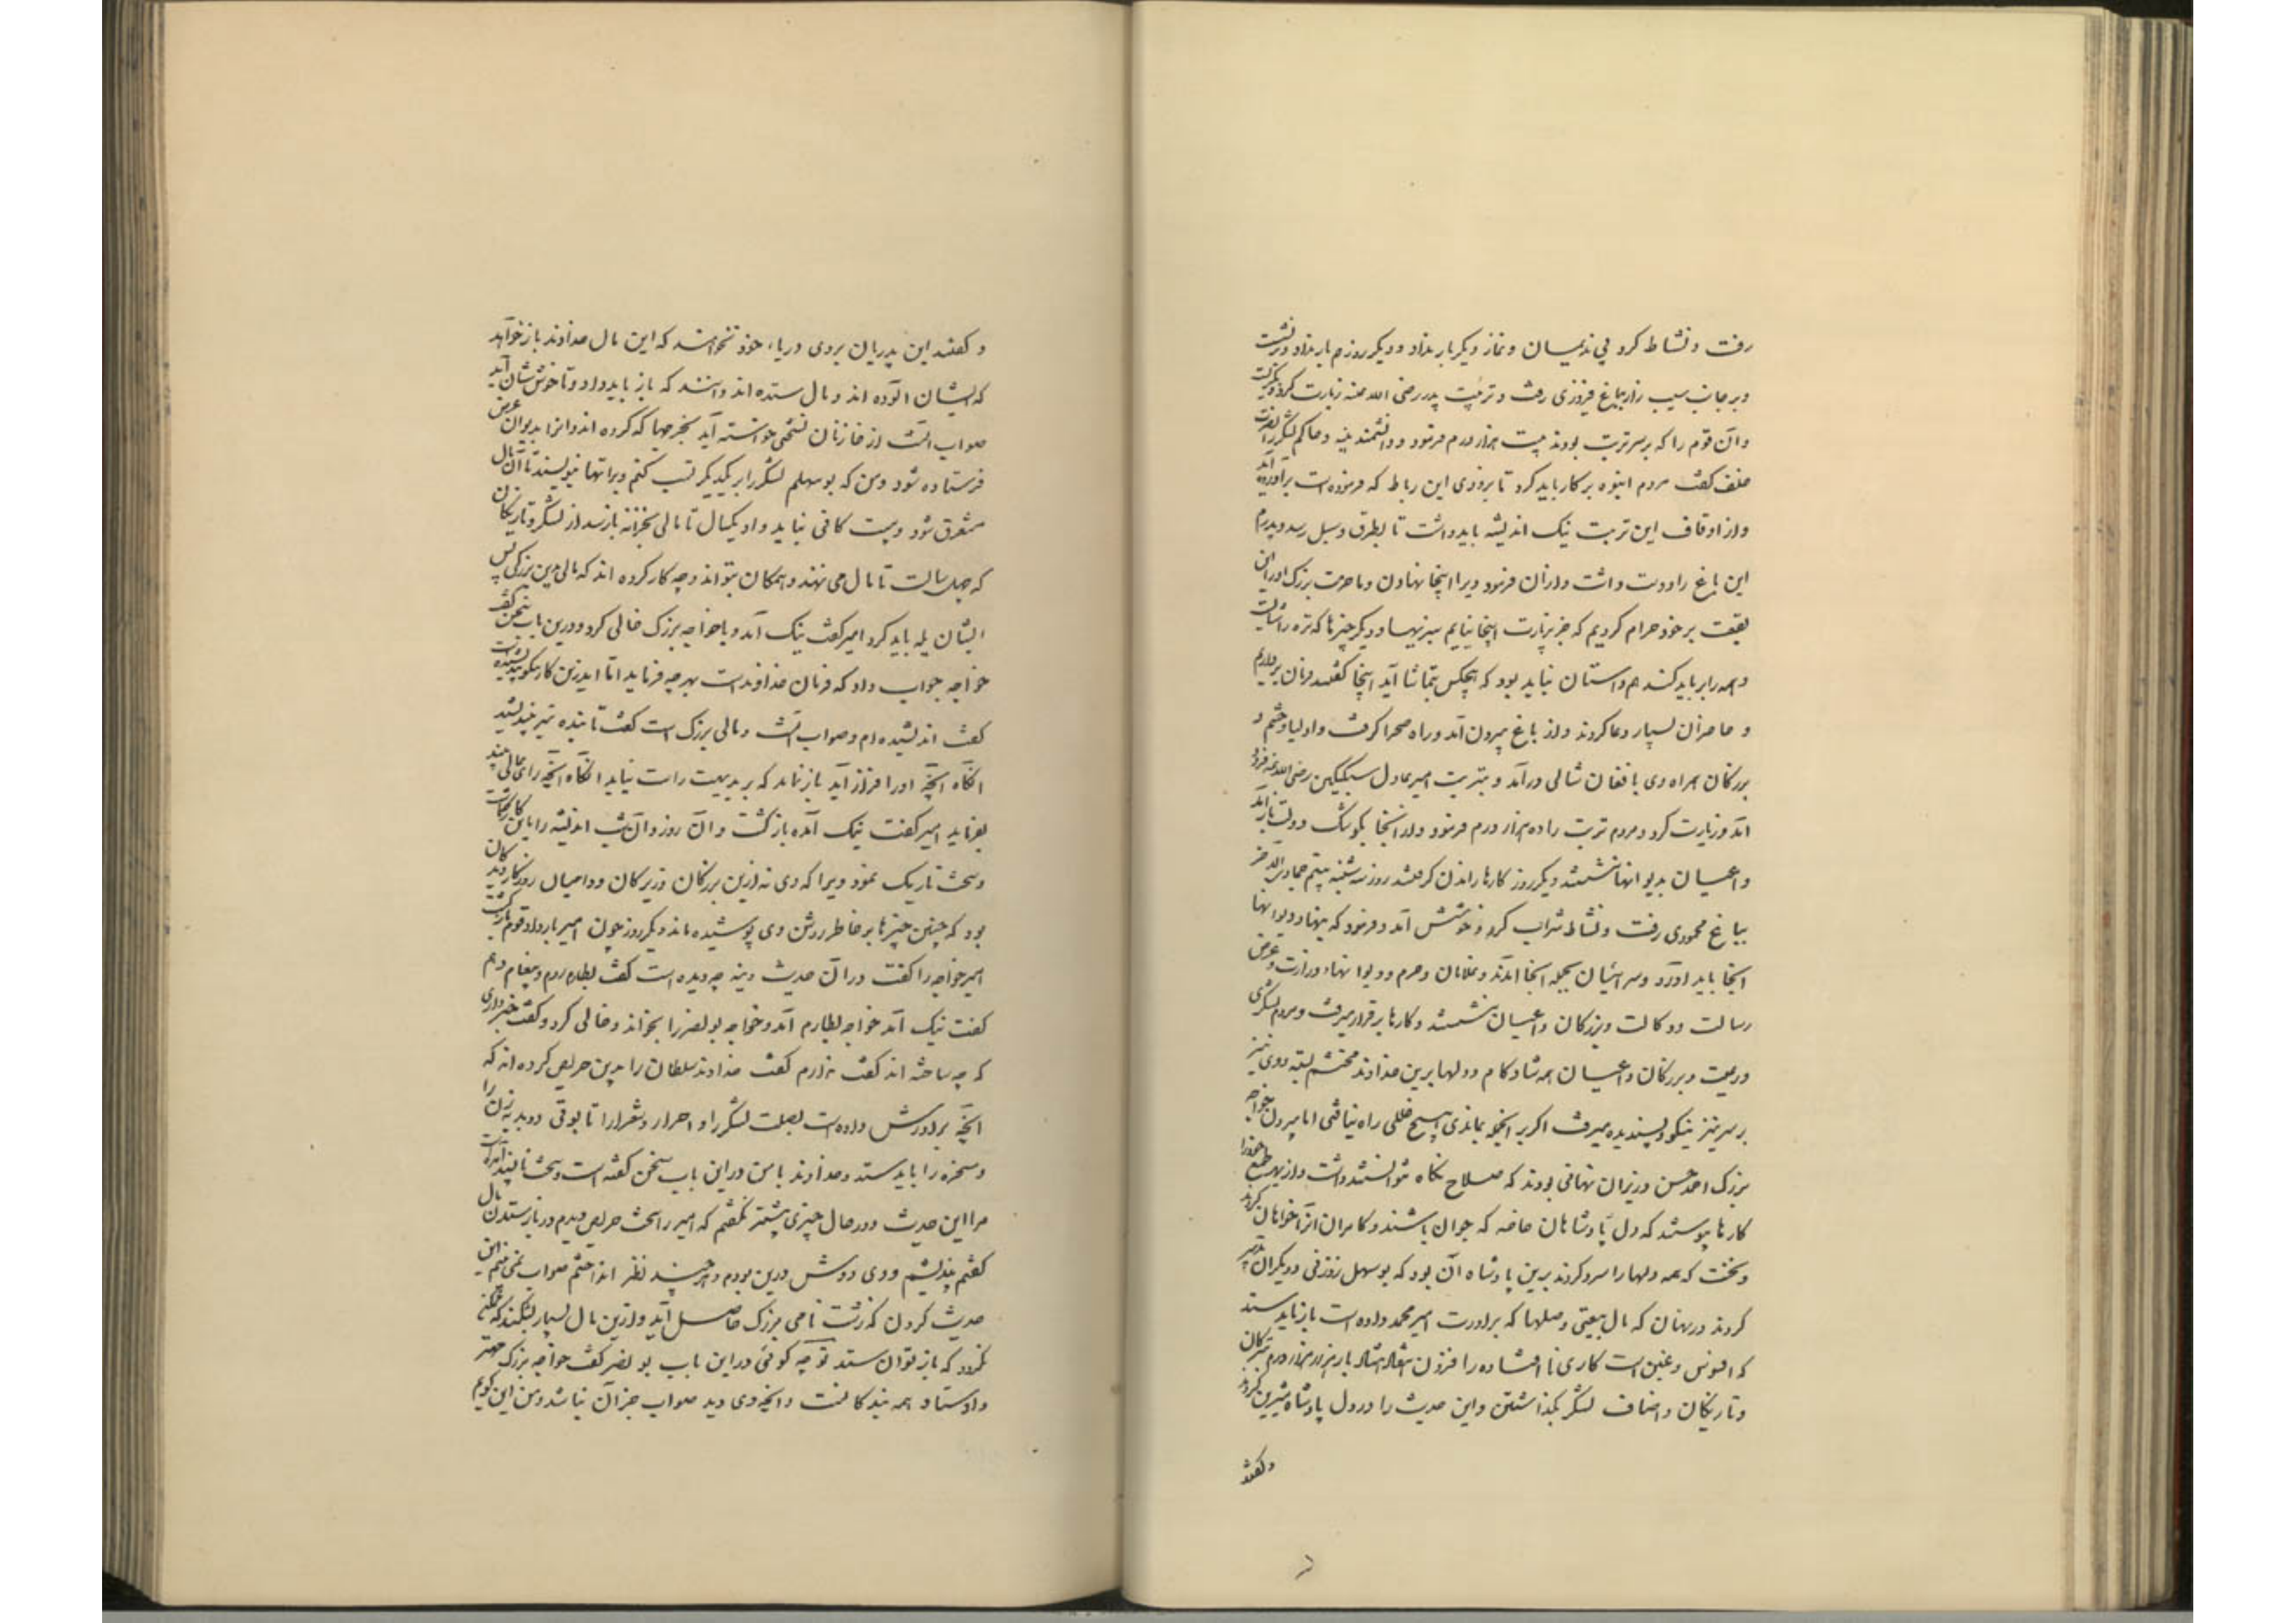 رفت و نشاط کرد بی ندیمان و نماز دیگر بار نداد و دیگر روز هم بار نداد و برنشست
و بر جانب سیب زار بباغ فیروزی رفت و تربت پدر رضی الله عنه زیارت کرد و بگریست
و آن قوم را که بر سر تربت بودند بیست هزار درم فرمود و دانشمند نبیه و حاکم لشکر را نصر
خلف گفت مردم انبوه بر کار باید کرد تا بزودی این رباط که فرموده است برآورده آید
و از اوقاف این تربت نیک اندیشه باید داشت تا بطرق و سبل رسد و پدرم
این باغ را دوست داشت و از آن فرمود ویرا اینجا نهادن و ما حرمت بزرگ او را این
بقعت بر خود حرام کردیم که جز بزیارت اینجا نیاییم سبزیها و دیگر چیزها که تره را شایست
و همه را بر باید کند و همداستان نباید بود که هیچکس بتماشا آید اینجا گفتند فرمان برداریم
و حاضران بسیار دعا کردند و از باغ بیرون آمد و راه صحرا گرفت و اولیا و حشم و
بزرگان همراه وی بافغان شالی درآمد و بتربت امیر عادل سبکتگین رضی الله عنه فرود
آمد و زیارت کرد و مردم تربت را ده هزار درم فرمود و از آنجا بکوشک دولت باز آمد
و اعیان بدیوانها نشستند دیگر روز کارها راندن گرفتند روز سه شنبه بیستم جمادی الآخر
بباغ محمودی رفت و نشاط شراب کرد و خوشش آمد و فرمود که بنها و دیوانها
آنجا باید آورد و سرائیان بجمله آنجا آمدند و غلامان و حرم و دیوانهاء وزارت و عرض
رسالت و وکالت و بزرگان و اعیان بنشستند و کارها بر قرار میرفت و مردم لشکری
و رعیت و بزرگان و اعیان همه شاد کام و دلها برین خداوند محتشم بسته و وی نیز
بر سیرتی نیکو و پسندیده میرفت اگر بر آنجمله بماندی هیچ خللی راه نیافتی اما بیرون خواجه
بزرگ احمد حسن وزیران نهانی بودند که صلاح نگاه نتوانستند داشت و از بهر طمع خود را
کارها پیوستند که دل پادشاهان خاصه که جوان باشند و کامران آنرا خواهان گردند
و نخست که همه دلها را سرد کردند برین پادشاه آن بود که بوسهل زوزنی و دیگران تدبیر
کردند در نهان که مال بیعتی و صلتها که برادرت امیر محمد داده است باز باید ستد
که افسوس و غبن است کاری نا افتاده را افزون هفتاد هشتاد بار هزار هزار درم بترکان
و تازیکان و اصناف لشکر بگذاشتن و این حدیث را در دل پادشاه شیرین کردند
و گفتند
و گفتند این پدریان بروی و ریاء خود نخواهند که این مال خداوند باز خواهد
که ایشان آلوده اند و مال ستده اند و دانند که باز باید داد و ناخوش شان آید
صواب آنست از خازنان نسختی خواسته آید بخرجها که کرده اند و آنرا بدیوان عرض
فرستاده شود و من که بوسهلم لشکر را بر یکدیگر تسبیب کنم و براتها نبویسند تا آن مال
مستغرق شود و بیستگانی نباید داد یکسال تا مالی بخزانه باز رسد از لشکر و تازیکان
که چهل سالست تا مال می نهند و همگان بنوااند و چه کار کرده اند که مالی بدین بزرگی پس
ایشان یله باید کرد امیر گفت نیک آمد و با خواجه بزرگ خالی کرد و درین باب سخن گفت
خواجه جواب داد که فرمان خداوند است بهر چه فرماید اما اندرین کار نیکو بیندیشیده است
گفت اندیشیده ام و صواب آنست و مالی بزرگ است گفت تا بنده نیز بیندیشد
آنگاه آنچه او را فراز آید باز نماید که بر بدیهت راست نیاید آنگاه آنچه رای عالی بیند
بفرماید امیر گفت نیک آمد و بازگشت و آن روز و آن شب اندیشه را باین کار گماشت
و سخت تاریک نمود ویرا که وی نه ازین بزرگان و زیرکان و داهیان روزگار دیدگان
بود که چنین چیزها بر خاطر روشن وی پوشیده ماند دیگر روز چون امیر بار داد و قوم بازگشت
امیر خواجه را گفت در آن حدیث دینه چه دیده است گفت بطارم روم و پیغام دهم
گفت نیک آمد خواجه بطارم آمد و خواجه بونصر را بخواند و خالی کرد و گفت خبر داری
که چه ساخته اند گفت ندارم گفت خداوند سلطان را بدین حریص کرده اند که
آنچه برادرش داده است بصلت لشکر را و احرار و شعرا را تا بوقی و دبدبه زن را
و مسخره را باید ستد و خداوند با من در این باب سخن گفته است و سخت ناپسند آمده است
مرا این حدیث و در حال چیزی بیشتر نگفتم که امیر را سخت حریص دیدم در باز ستدن مال
گفتم بیندیشم و دی و دوش درین بودم و هر چند نظر انداختم صواب نمی بینم این
حدیث کردن که زشت نامی بزرگ حاصل آید و ازین مال بسیار بشکند که ممکن
نگردد که باز توان ستد تو چه گوئی در این باب بونصر گفت خواجه بزرگ مهتر
و استاد همه بندگانست و آنچه وی دید صواب جز آن نباشد و من این گویم